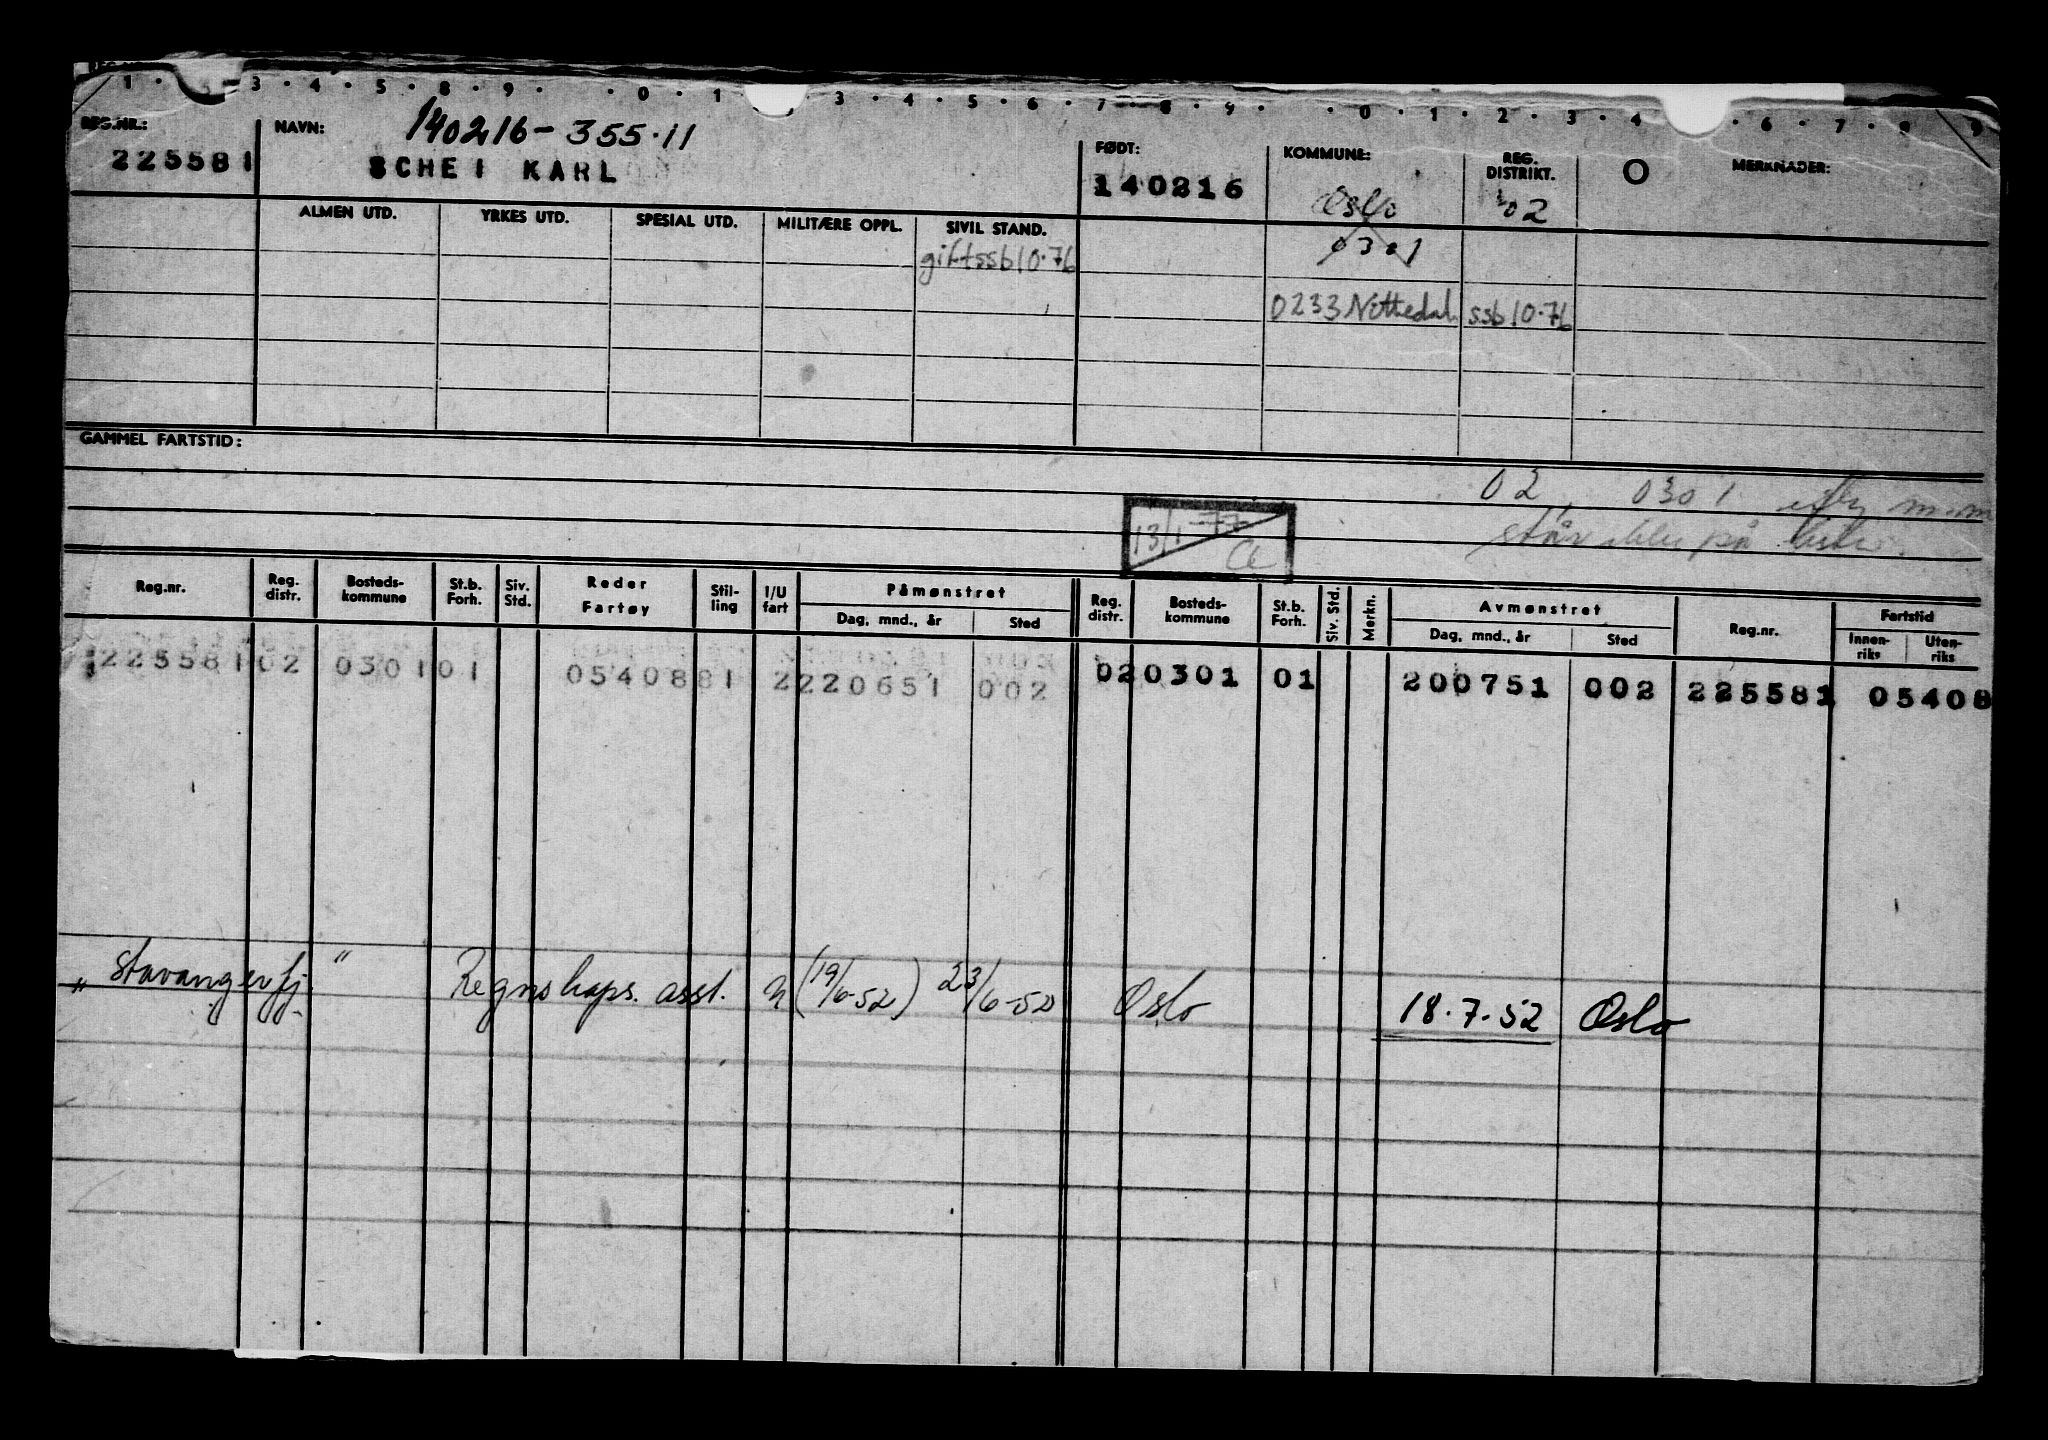 1 · 3 · 4 · 5 · 8 · 9 · · 0 · 1 · 3 · 4 · 5 · 6 · 7 · 8 · 9 · · 0 · 1 · 2 · 3 · 4 · 6 · 7 · 8 9
REG.NR.: NAVN: 140216-355·11 FØDT: KOMMUNE: REG. DISTRIKT. O MERKNADER:
225581 SCHEI KARL 140216 Oslo 02
ALMEN UTD. YRKES UTD. SPESIAL UTD. MILITÆRE OPPL. SIVIL STAND. 0301
gift ssb 10·76
0233 Nittedal ssb 10·76
GAMMEL FARTSTID:
02, 0301
13/1 77 står på
Reg.nr. Reg. distr. Bosteds-kommune St.b. Forh. Siv. Std. Reder Fartøy Stil-ling I/U fart Påmønstret Dag, mnd., år Sted Reg. distr. Bosteds-kommune St.b. Forh. Siv. Std. Merkn. Avmønstret Dag, mnd., år Sted Reg.nr. Fartstid Innen-riks Uten-riks
225581 02 0301 01 05408 81 2 220651 002 02 0301 01 200751 002 225581 05408
"Stavangerfj." Regnskaps. asst. (19/6-52) 23/6-52 Oslo 18.7.52 Oslo